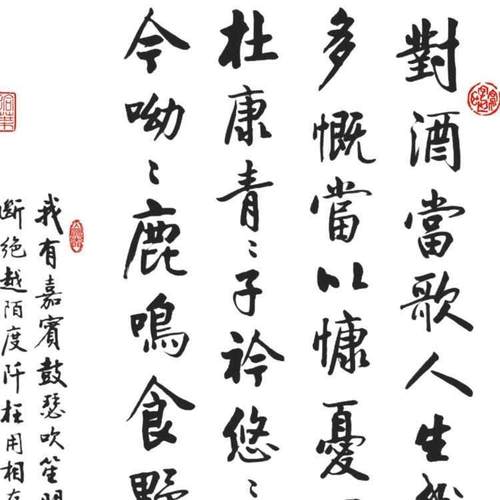 對酒當歌人生
多慨當以慷憂
杜康青〻子衿悠〻
今呦〻鹿鳴食野
我有嘉賓鼓瑟吹笙
斷絕越陌度阡枉用相